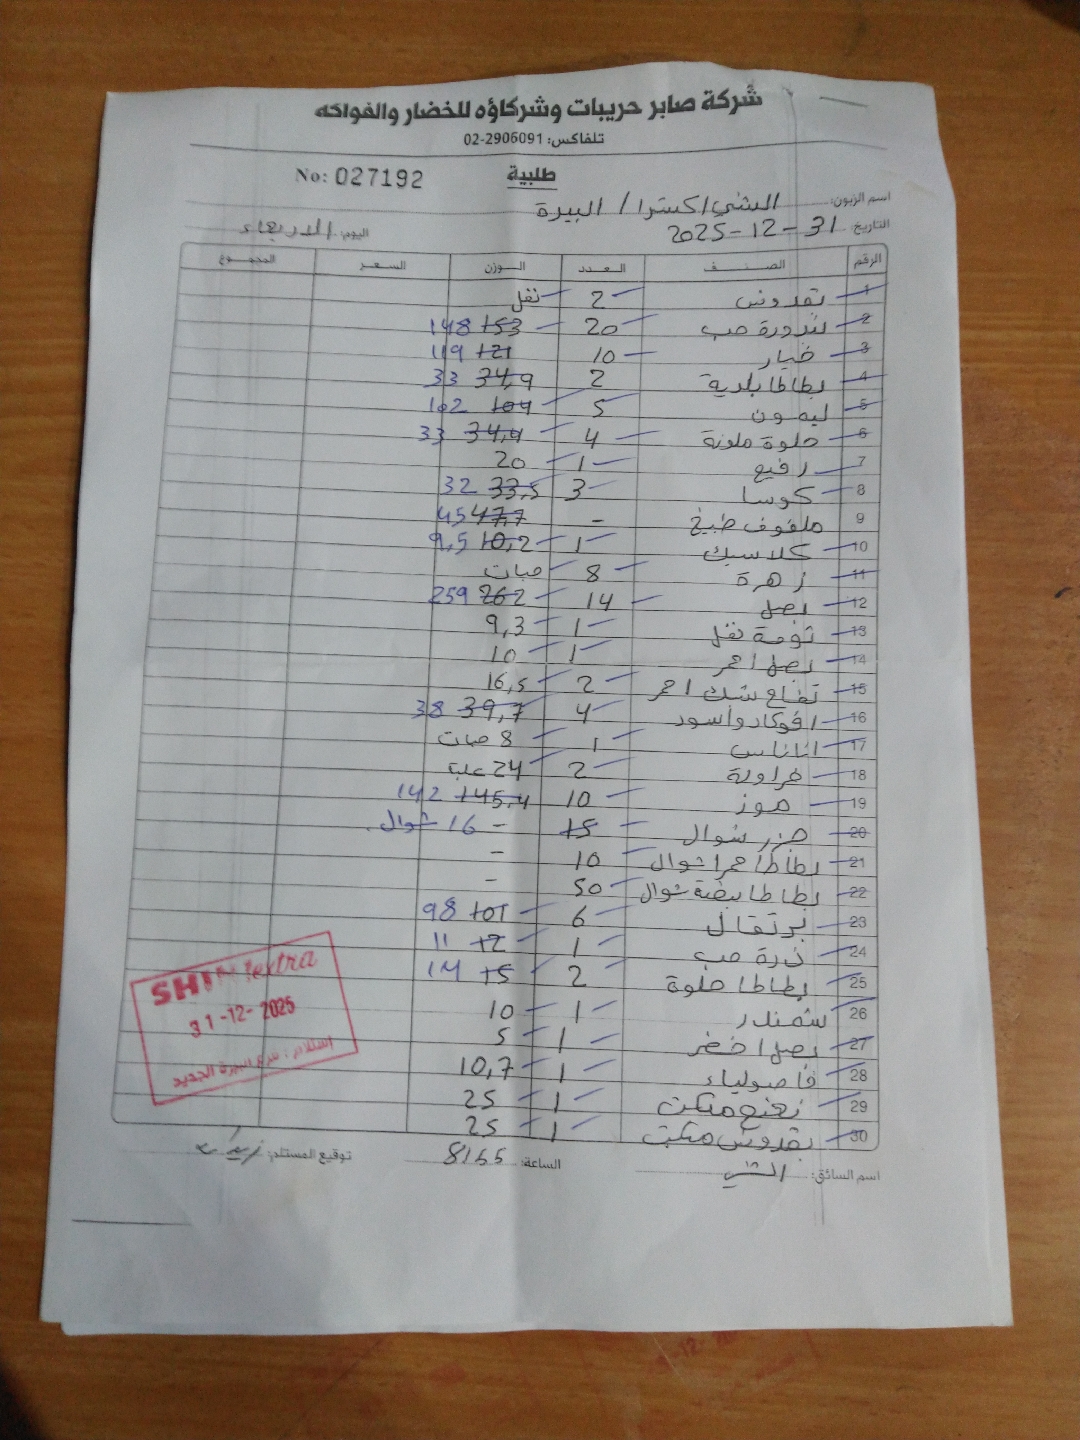 شركة صابر حريبات وشركاؤه للخضار والفواكه
تلفاكس: 02-2906091
طلبية No: 027192
اسم الزبون: الشني اكسترا / البيرة
التاريخ: 31-12-2025 اليوم: الاربعاء
الرقم الصنف العدد الوزن السعر المجموع
1 بقدونس 2 نقل
2 بندورة حب 20 153 148
3 خيار 10 121 119
4 بطاطا بلدية 2 34,9 33
5 ليمون 5 104 102
6 حلوة ملونة 4 34,4 33
7 رفيع 1 20
8 كوسا 3 33,5 32
9 ملفوف طبيخ - 47,7 45
10 كلاسيك 1 10,2 9,5
11 زهرة 8 حبات
12 بصل 14 262 259
13 ثومة نقل 1 9,3
14 بصل احمر 1 10
15 تفاح سك احمر 2 16,5
16 افوكادو اسود 4 39,7 38
17 اناناس 1 8 حبات
18 فراولة 2 24 علب
19 موز 10 145,4 142
20 جزر شوال 15 - 16 شوال.
21 بطاطا حمرا شوال 10 -
22 بطاطا بيضة شوال 50 -
23 برتقال 6 101 98
24 ذرة حب 1 12 11
25 بطاطا حلوة 2 15 14
26 شمندر 1 10
27 بصل اخضر 1 5
28 فاصولياء 1 10,7
29 نعنع مبكت 1 25
30 بقدونس مبكت 1 25
اسم السائق: الشني الساعة: 8:55 توقيع المستلم:
SHINI extra
31-12-2025
إستلام: فرع البيرة الجديد